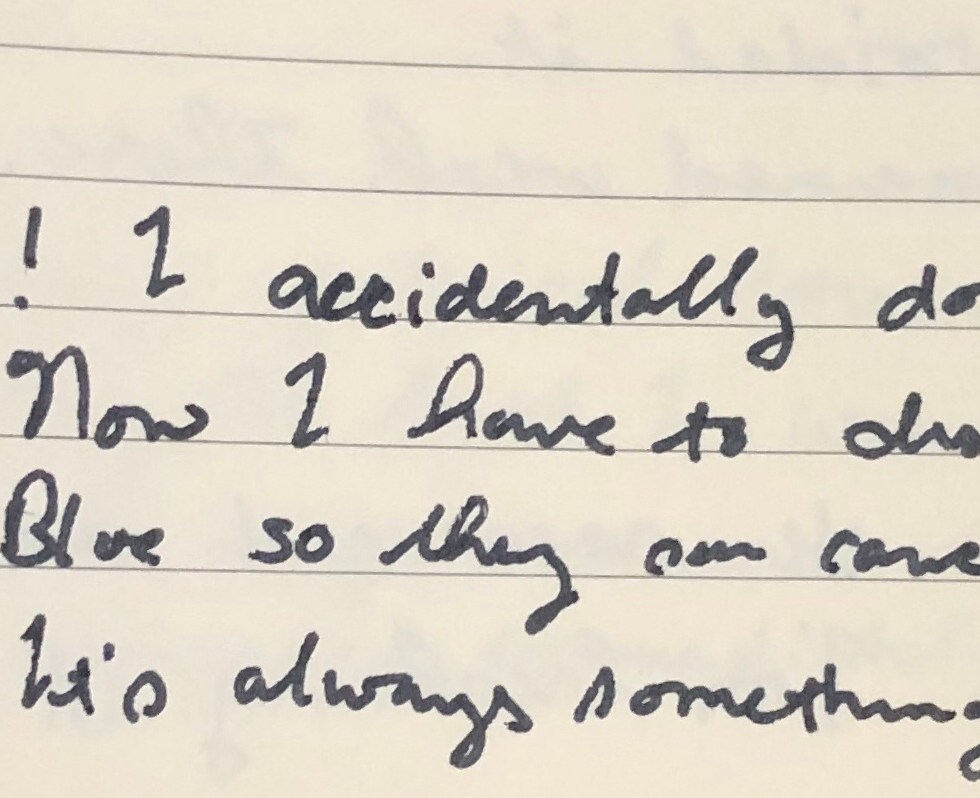 ! I accidentally do
Now I have to
Blue so they can
It's always something